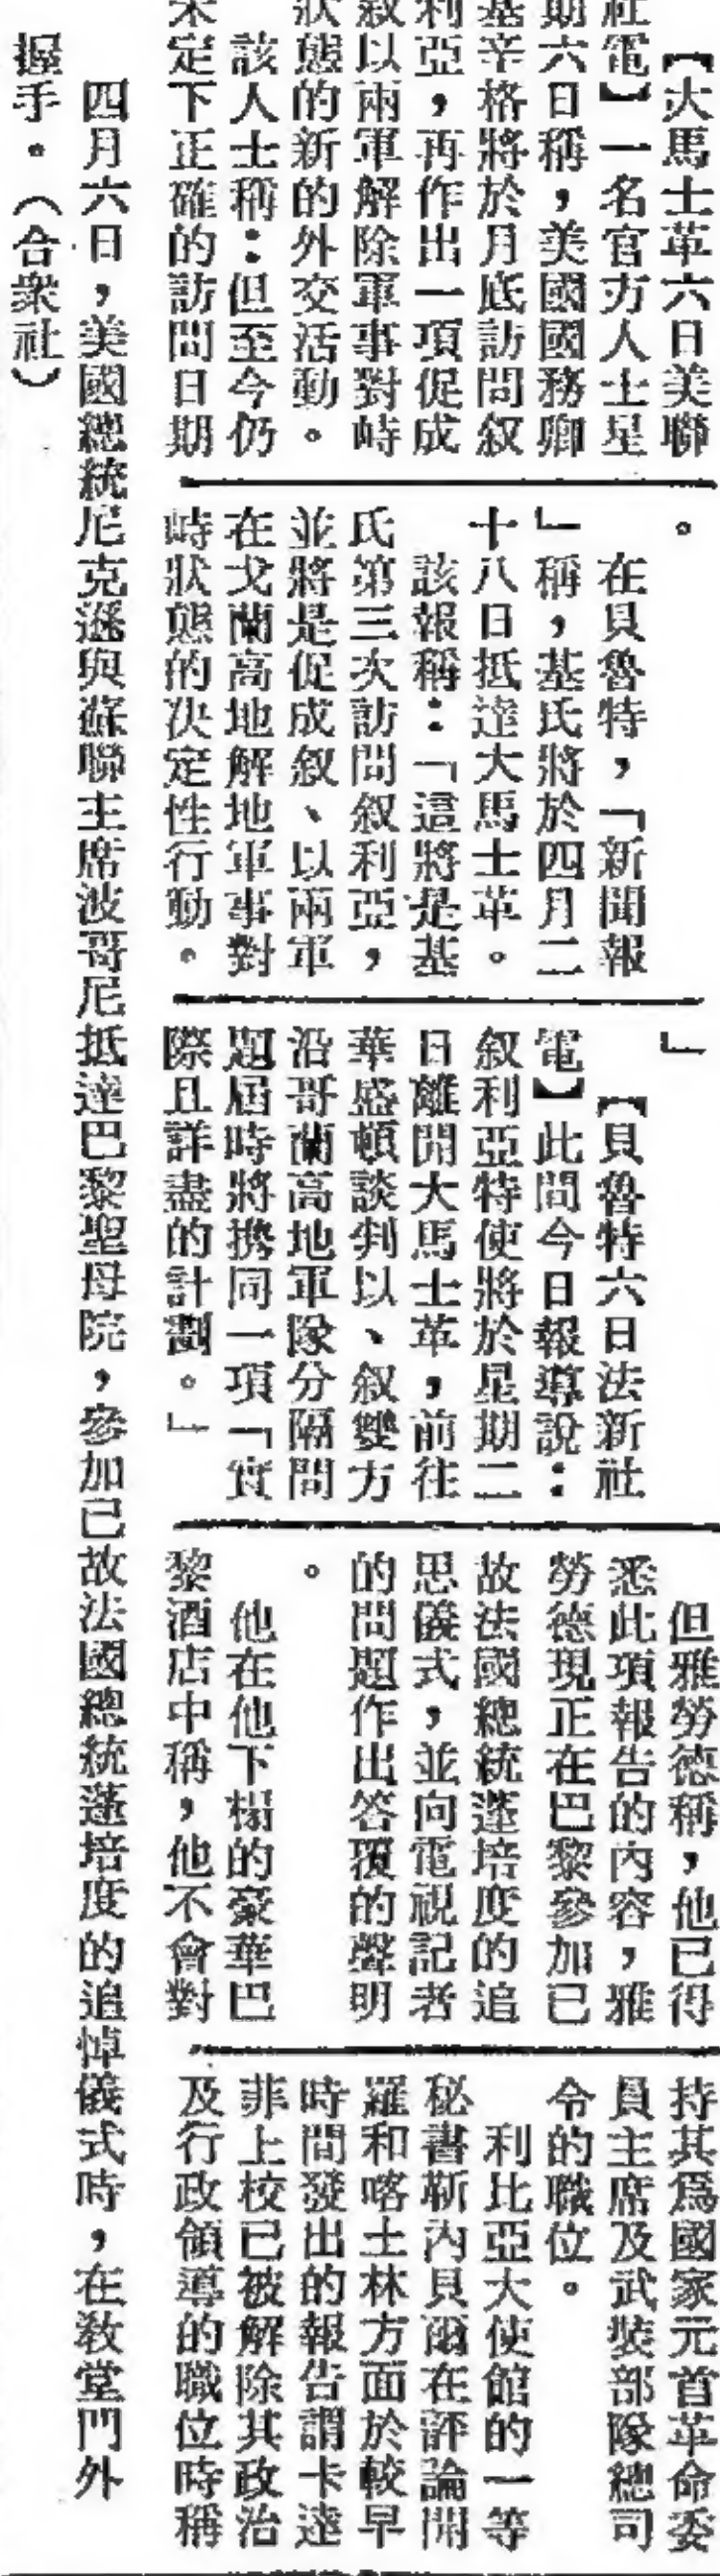 【大馬士革六日美聯
社電】一名官方人士星
期六日稱，美國國務卿
基辛格將於月底訪問叙
利亞，再作出一項促成
叙以兩軍解除軍事對峙
狀態的新的外交活動。
該人士稱：但至今仍
未定下正確的訪問日期
。
在貝魯特，「新聞報
」稱，基氏將於四月二
十八日抵達大馬士革。
該報稱：「這將是基
氏第三次訪問叙利亞，
並將是促成叙、以兩軍
在戈蘭高地解地軍事對
峙狀態的决定性行動。
」
【貝魯特六日法新社
電】此間今日報導說：
叙利亞特使將於星期二
日離開大馬士革，前往
華盛頓談判以、叙雙方
沿哥蘭高地軍隊分隔問
題屆時將携同一項「實
際且詳盡的計劃。」
但雅勞德稱，他已得
悉此項報告的內容，雅
勞德現正在巴黎參加已
故法國總統蓬培度的追
思儀式，並向電視記者
的問題作出答覆的聲明
。
他在他下榻的豪華巴
黎酒店中稱，他不會對
持其爲國家元首革命委
員主席及武裝部隊總司
令的職位。
利比亞大使館的一等
秘書靳內貝爾在評論開
羅和喀土林方面於較早
時間發出的報告謂卡達
非上校已被解除其政治
及行政領導的職位時稱
四月六日，美國總統尼克遜與蘇聯主席波哥尼抵達巴黎聖母院，參加已故法國總統蓬培度的追悼儀式時，在教堂門外
握手。（合衆社）